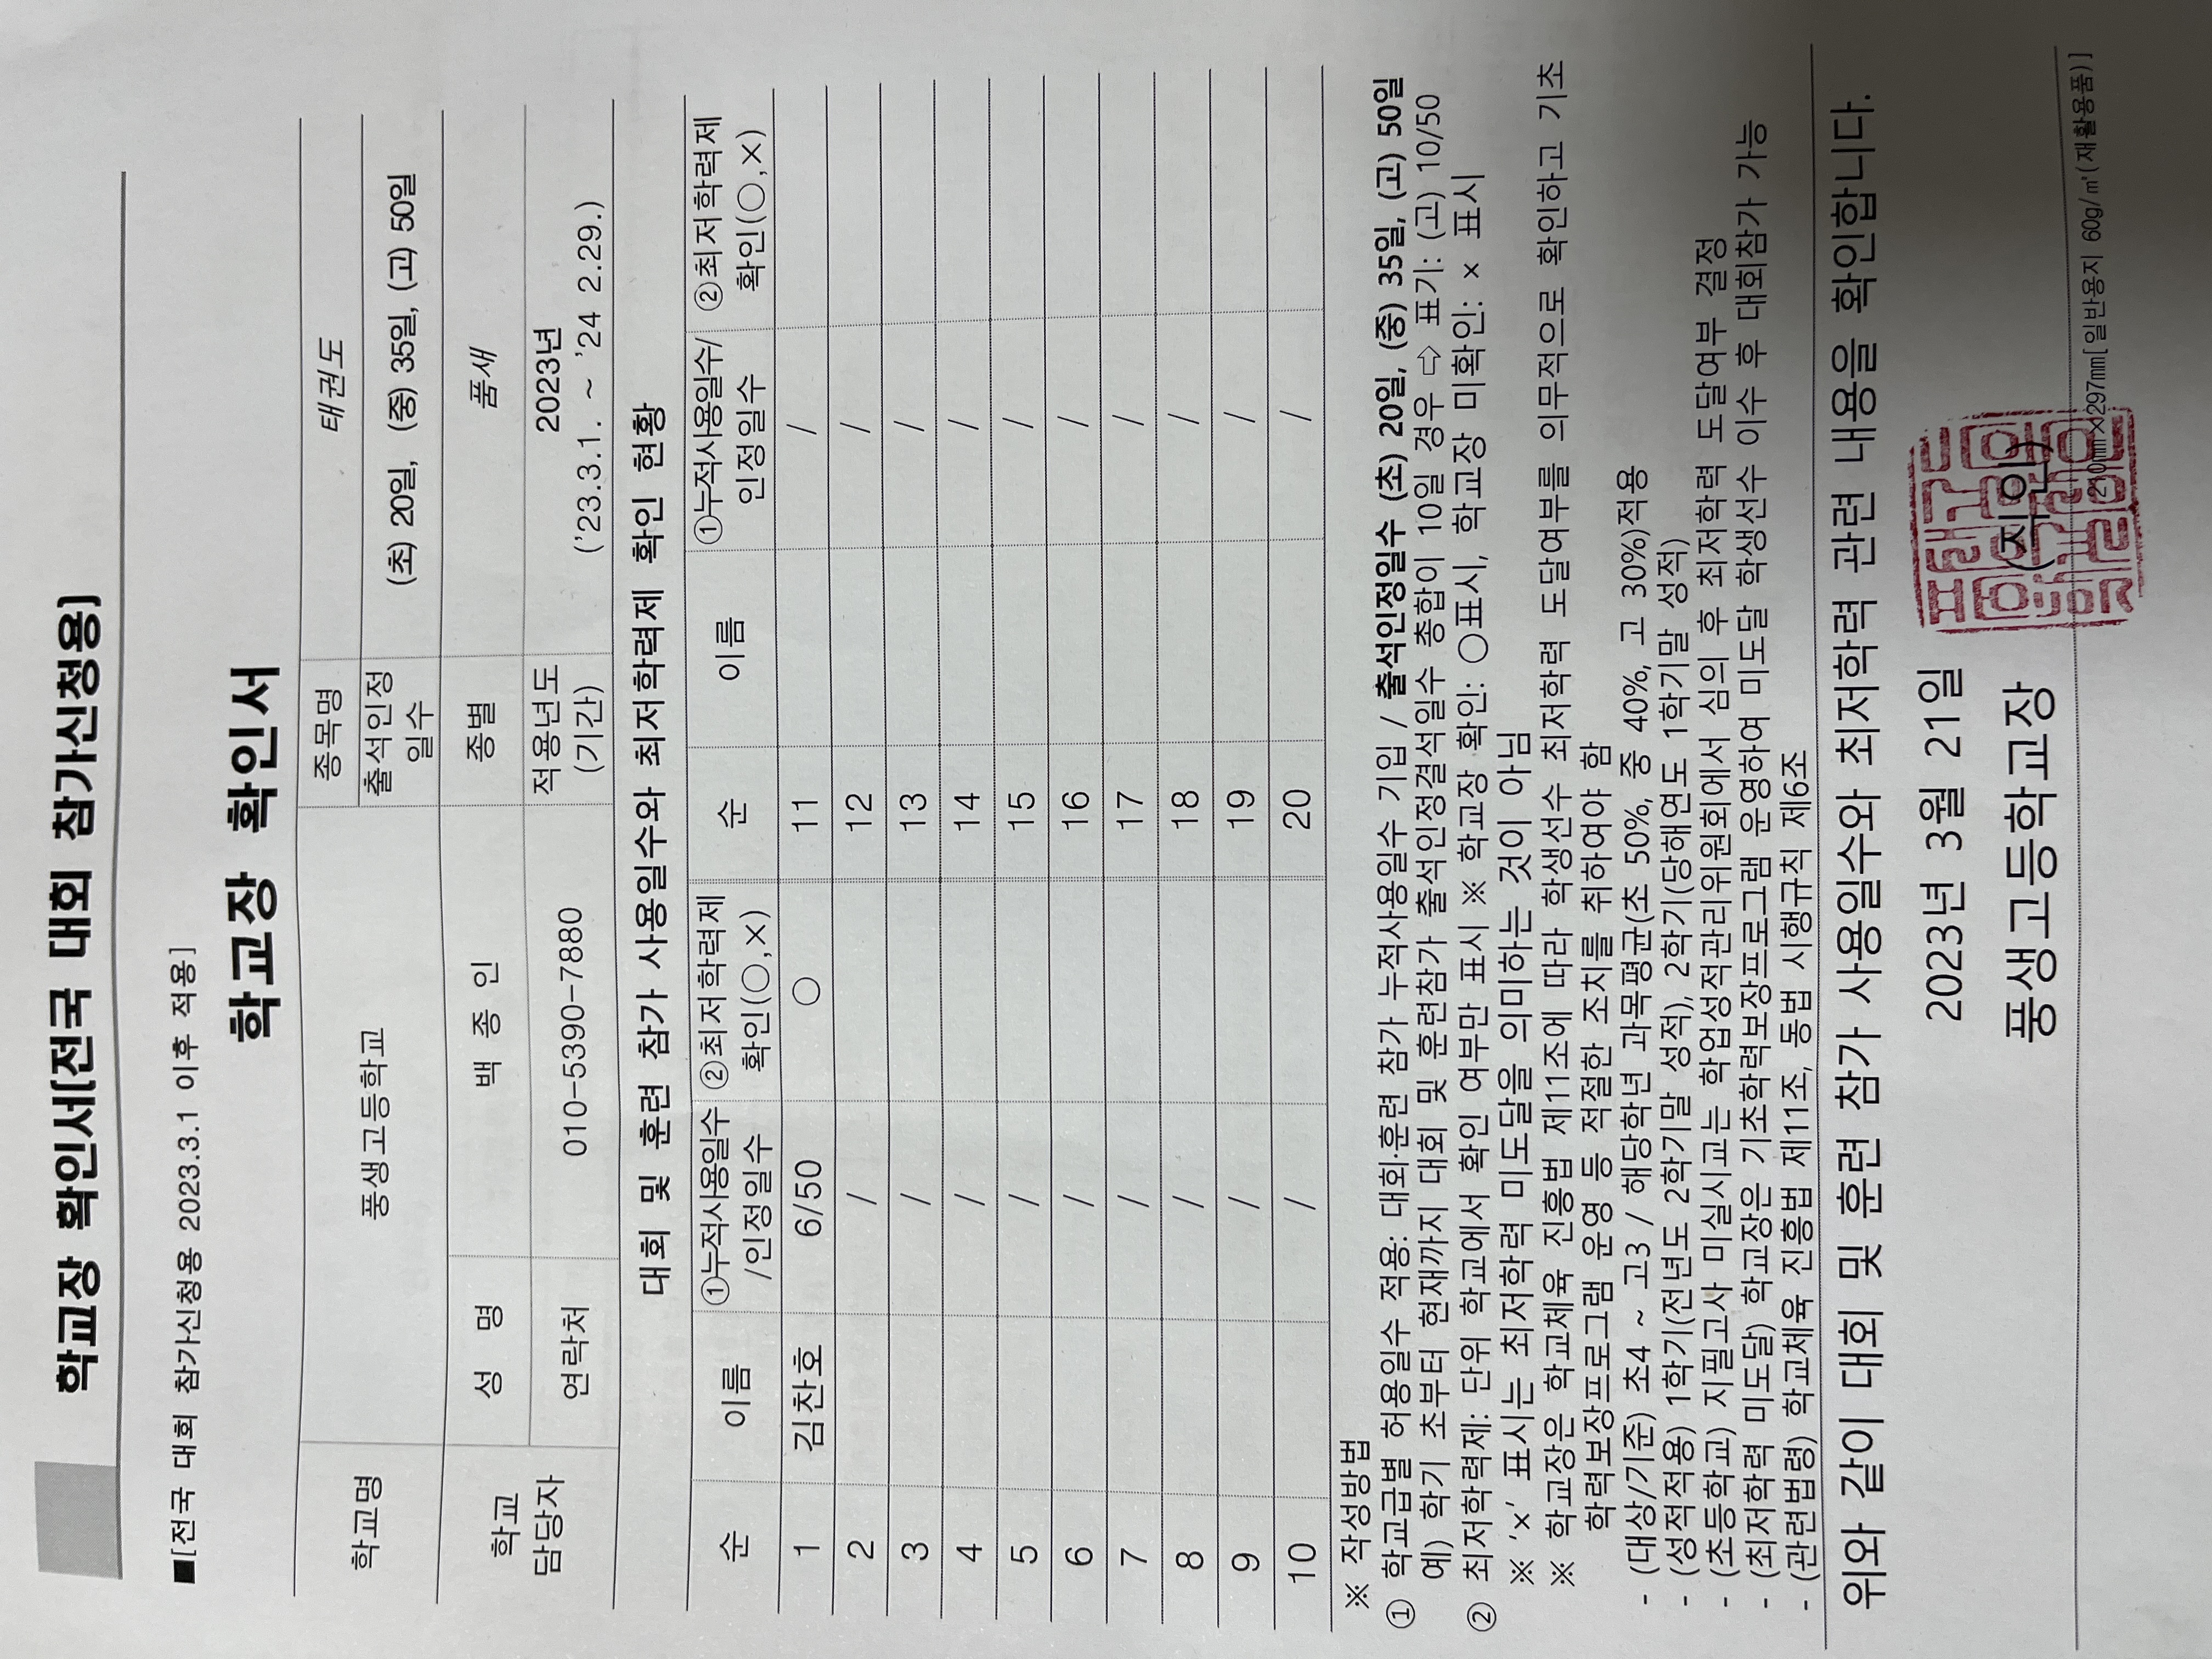 학교장 확인서[전국 대회 참가신청용]
■[전국 대회 참가신청용 2023.3.1 이후 적용]
학교장 확인서
학교명 풍생고등학교 종목명 태권도
출석인정일수 (초) 20일, (중) 35일, (고) 50일
학교 담당자 성 명 백 종 인 종별 품새
연락처 010-5390-7880 적용년도(기간) 2023년
('23.3.1. ~ '24 2.29.)
대회 및 훈련 참가 사용일수와 최저학력제 확인 현황
순 이름 ①누적사용일수/인정일수 ②최저학력제 확인(○,×) 순 이름 ①누적사용일수/인정일수 ②최저학력제 확인(○,×)
1 김찬호 6/50 ○ 11 /
2 / 12 /
3 / 13 /
4 / 14 /
5 / 15 /
6 / 16 /
7 / 17 /
8 / 18 /
9 / 19 /
10 / 20 /
※ 작성방법
① 학교급별 허용일수 적용: 대회·훈련 참가 누적사용일수 기입 / 출석인정일수 (초) 20일, (중) 35일, (고) 50일
예) 학기 초부터 현재까지 대회 및 훈련참가 출석인정결석일수 총합이 10일 경우 ⇨ 표기: (고) 10/50
② 최저학력제: 단위 학교에서 확인 여부만 표시 ※ 학교장 확인: ○표시, 학교장 미확인: × 표시
※ '×' 표시는 최저학력 미도달을 의미하는 것이 아님
※ 학교장은 학교체육 진흥법 제11조에 따라 학생선수 최저학력 도달여부를 의무적으로 확인하고 기초
학력보장프로그램 운영 등 적절한 조치를 취하여야 함
- (대상/기준) 초4 ~ 고3 / 해당학년 과목평균(초 50%, 중 40%, 고 30%)적용
- (성적적용) 1학기(전년도 2학기말 성적), 2학기(당해연도 1학기말 성적)
- (초등학교) 지필고사 미실시교는 학업성적관리위원회에서 심의 후 최저학력 도달여부 결정
- (최저학력 미도달) 학교장은 기초학력보장프로그램 운영하여 미도달 학생선수 이수 후 대회참가 가능
- (관련법령) 학교체육 진흥법 제11조, 동법 시행규칙 제6조
위와 같이 대회 및 훈련 참가 사용일수와 최저학력 관련 내용을 확인합니다.
2023년 3월 21일
풍생고등학교장 (직인)
210mm×297mm[일반용지 60g/㎡(재활용품)]